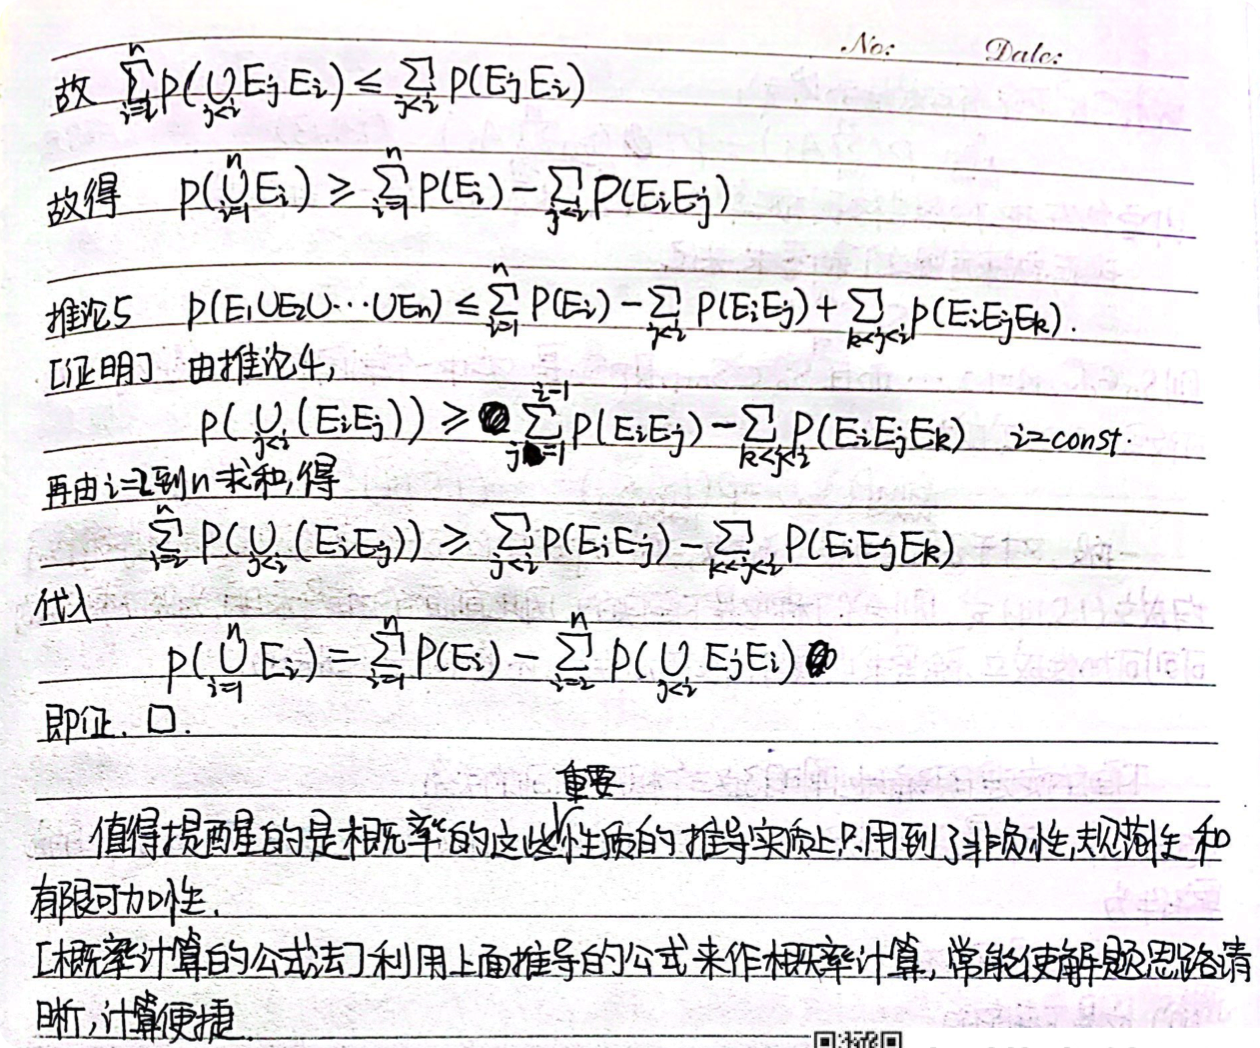 No: Date:
故 $\sum_{i=2}^{n} P(\bigcup_{j<i} E_j E_i) \le \sum_{j<i} P(E_j E_i)$
故得 $P(\bigcup_{i=1}^{n} E_i) \ge \sum_{i=1}^{n} P(E_i) - \sum_{j<i} P(E_i E_j)$
推论5 $P(E_1 \cup E_2 \cup \cdots \cup E_n) \le \sum_{i=1}^{n} P(E_i) - \sum_{j<i} P(E_i E_j) + \sum_{k<j<i} P(E_i E_j E_k).$
[证明] 由推论4,
$P(\bigcup_{j<i} (E_i E_j)) \ge \sum_{j=1}^{i-1} P(E_i E_j) - \sum_{k<j<i} P(E_i E_j E_k)$ i=const.
再由i=2到n求和,得
$\sum_{i=2}^{n} P(\bigcup_{j<i} (E_i E_j)) \ge \sum_{j<i} P(E_i E_j) - \sum_{k<j<i} P(E_i E_j E_k)$
代入
$P(\bigcup_{i=1}^{n} E_i) = \sum_{i=1}^{n} P(E_i) - \sum_{i=2}^{n} P(\bigcup_{j<i} E_j E_i)$
即证. □.
值得提醒的是概率的这些重要性质的推导实质上只用到了非负性,规范性和
有限可加性.
[概率计算的公式法]利用上面推导的公式来作概率计算,常能使解题思路清
晰,计算便捷.